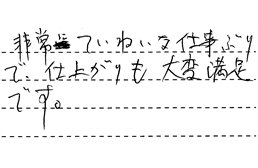 非常にていねいな仕事ぶり
で、仕上がりも大変満足
です。